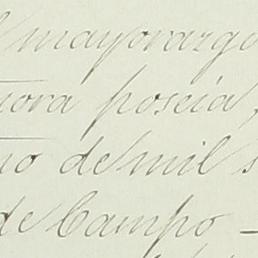 l mayorazgo
uora poseia,
no de mil s
de Campo -